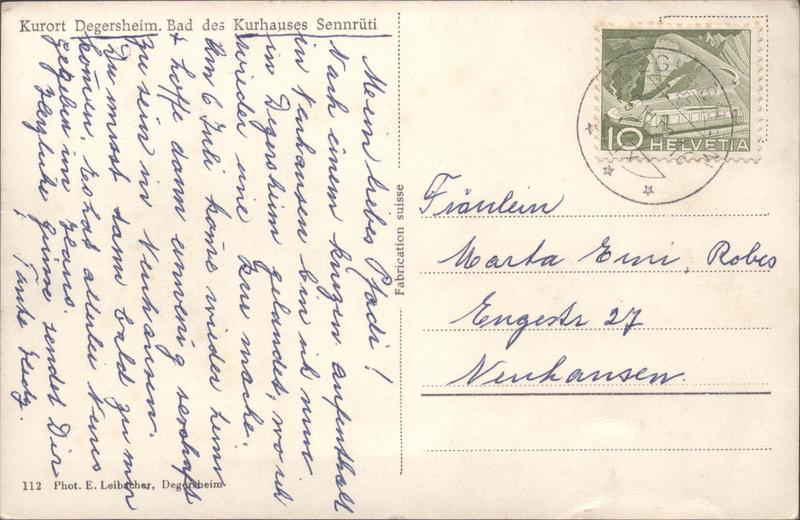 Kurort Degersheim. Bad des Kurhauses Sennrüti
Mein liebes Pfadi!
Nach einem kurzen aufenthalt
in Neuhausen bin ich nun
in Degersheim gelandet, wo ich
wieder eine Kur mache.
Am 6 Juli kome wieder heim
& hoffe dann ein wenig sesshaft
zu sein in Neuhausen.
Du must dann bald zu mir
komen, es hat allerlei Neues
gegeben im Haus.
Herzliche grüsse sendet Dir
Tante Hedy.
112 Phot. E. Leibacher, Degersheim
Fabrication suisse
10 HELVETIA
Fräulein
Marta Emi, Robes
Engestr 27
Neuhausen.